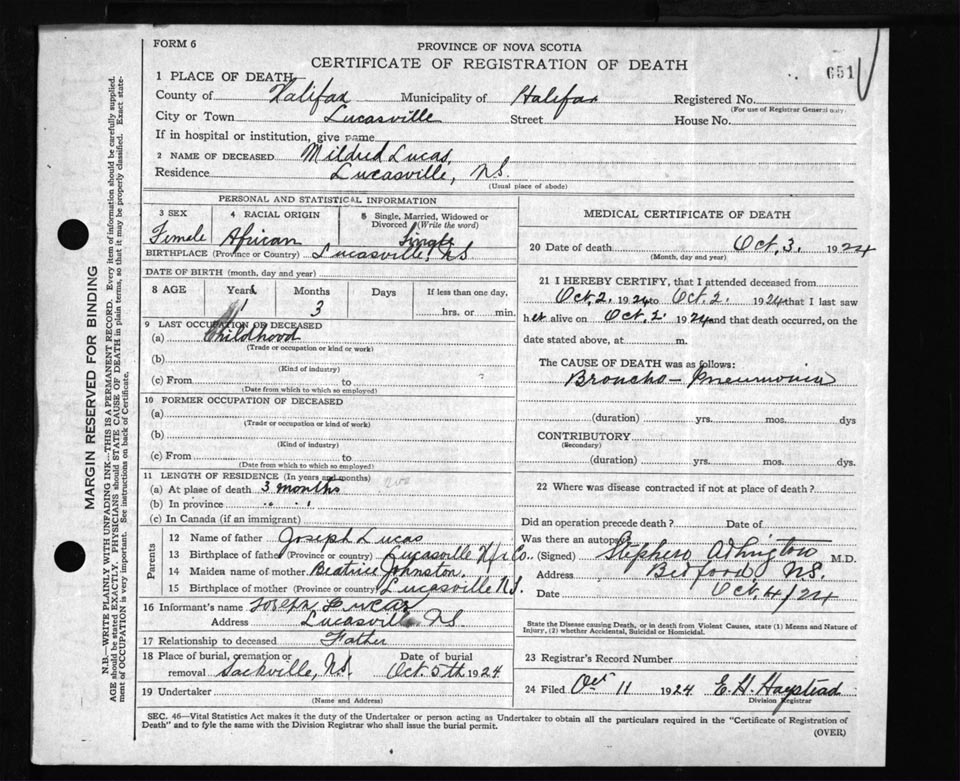 FORM 6
PROVINCE OF NOVA SCOTIA
CERTIFICATE OF REGISTRATION OF DEATH
651
1 PLACE OF DEATH
County of Halifax Municipality of Halifax Registered No.
(For use of Registrar General only.
City or Town Lucasville Street House No.
If in hospital or institution, give name
2 NAME OF DECEASED Mildred Lucas,
Residence Lucasville, N.S.
(Usual place of abode)
PERSONAL AND STATISTICAL INFORMATION
3 SEX 4 RACIAL ORIGIN 5 Single, Married, Widowed or Divorced (Write the word)
Female African Single
BIRTHPLACE (Province or Country) Lucasville, N.S
DATE OF BIRTH (month, day and year)
8 AGE Years Months Days If less than one day,
1 3 hrs. or min.
9 LAST OCCUPATION OF DECEASED
(a) Childhood
(Trade or occupation or kind or work)
(b)
(Kind of industry)
(c) From to
(Date from which to which so employed)
10 FORMER OCCUPATION OF DECEASED
(a)
(Trade or occupation or kind or work)
(b)
(Kind of industry)
(c) From to
(Date from which to which so employed)
11 LENGTH OF RESIDENCE (In years and months)
(a) At place of death 3 months
(b) In province " "
(c) In Canada (if an immigrant)
Parents
12 Name of father Joseph Lucas
13 Birthplace of father (Province or country) Lucasville Hfx Co.
14 Maiden name of mother Beatrice Johnston.
15 Birthplace of mother (Province or country) Lucasville N.S.
16 Informant's name Joseph Lucas
Address Lucasville N.S
17 Relationship to deceased Father
18 Place of burial, cremation or removal Sackville, N.S. Date of burial Oct. 5th 1924
19 Undertaker
(Name and Address)
MEDICAL CERTIFICATE OF DEATH
20 Date of death Oct, 3. 1924
(Month, day and year)
21 I HEREBY CERTIFY, that I attended deceased from
Oct. 2. 1924 to Oct. 2. 1924 that I last saw
her alive on Oct. 2. 1924 and that death occurred, on the
date stated above, at m.
The CAUSE OF DEATH was as follows:
Broncho-Pneumonia
(duration) yrs. mos. dys
CONTRIBUTORY
(Secondary)
(duration) yrs. mos. dys.
22 Where was disease contracted if not at place of death?
Did an operation precede death? Date of
Was there an autopsy?
(Signed) M.D.
Address Bedford, N.S.
Date Oct, 4/24
State the Disease causing Death, or in death from Violent Causes, state (1) Means and Nature of
Injury, (2) whether Accidental, Suicidal or Homicidal.
23 Registrar's Record Number
24 Filed Oct 11 1924 E. H.
Division Registrar
SEC. 46—Vital Statistics Act makes it the duty of the Undertaker or person acting as Undertaker to obtain all the particulars required in the "Certificate of Registration of
Death" and to fyle the same with the Division Registrar who shall issue the burial permit.
(OVER)
MARGIN RESERVED FOR BINDING
N.B.—WRITE PLAINLY WITH UNFADING INK—THIS IS A PERMANENT RECORD. Every item of information should be carefully supplied.
AGE should be stated EXACTLY. PHYSICIANS should STATE CAUSE OF DEATH in plain terms, so that it may be properly classified. Exact state-
ment of OCCUPATION is very important. See instructions on back of Certificate.